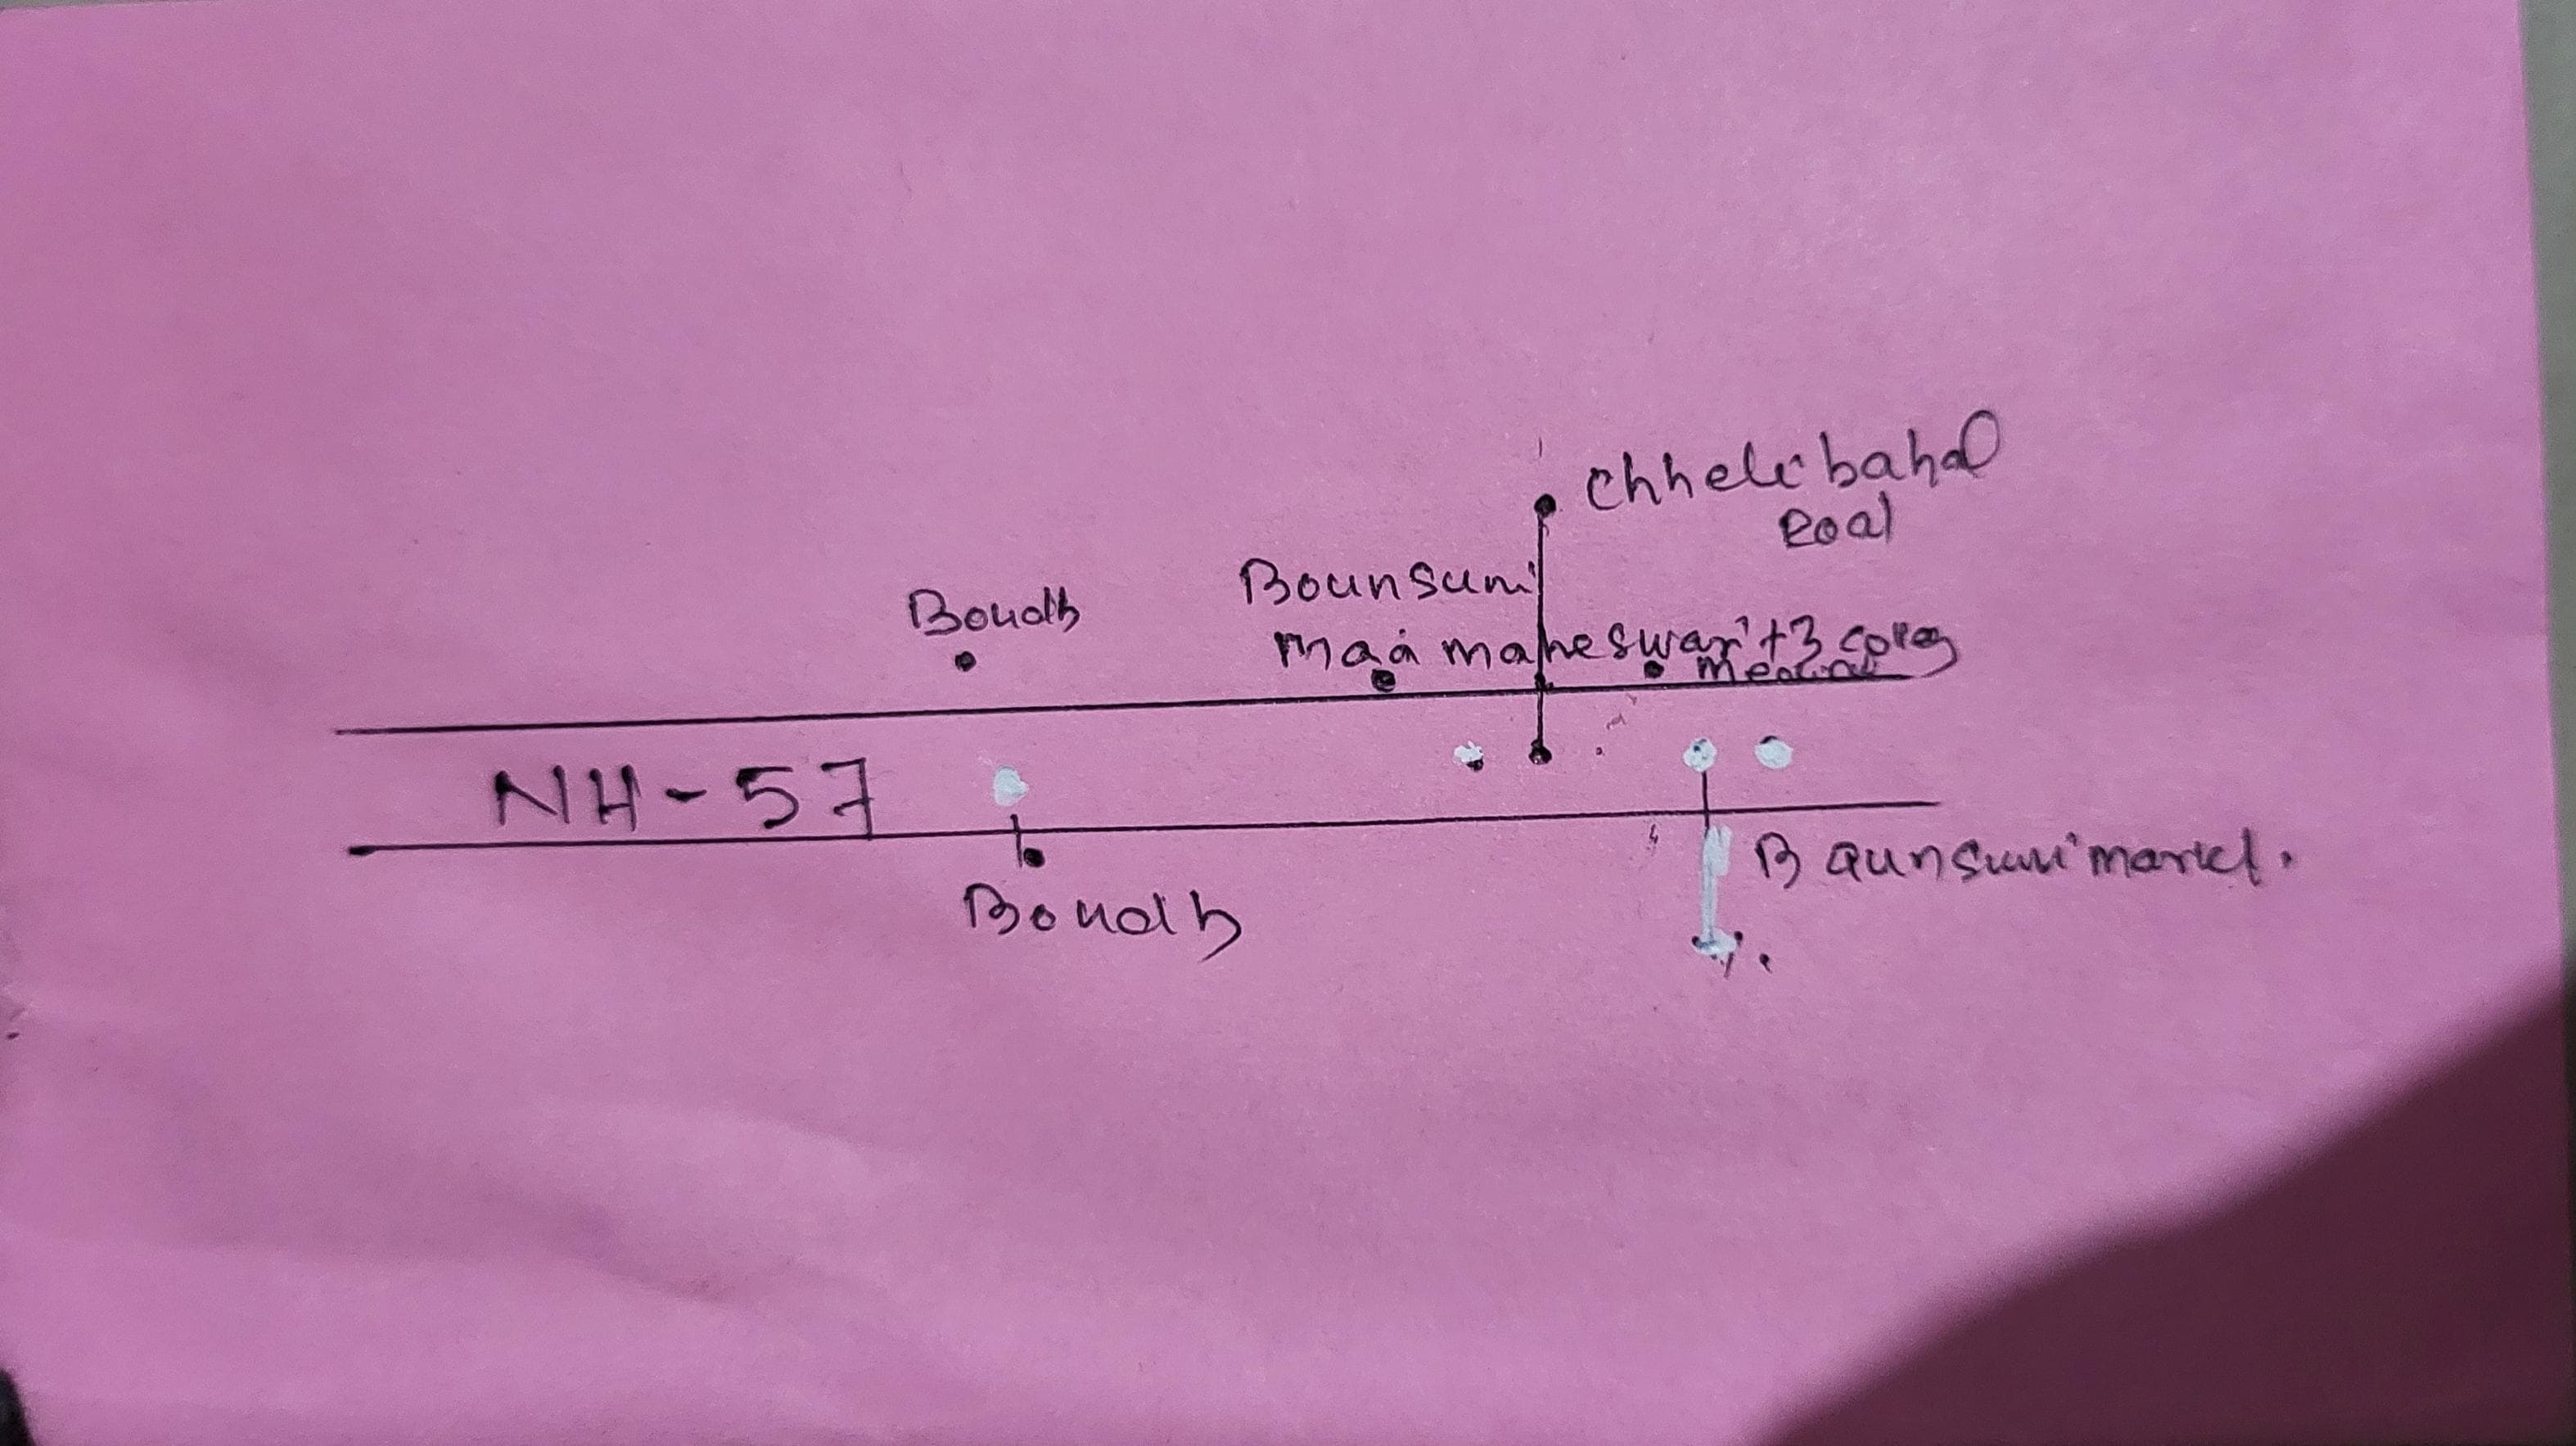 Chhelibahal
Road
Bounsuni
Boudh
Maa maheswari +3 colleg
NH-57
Baunsuni market.
Boudh